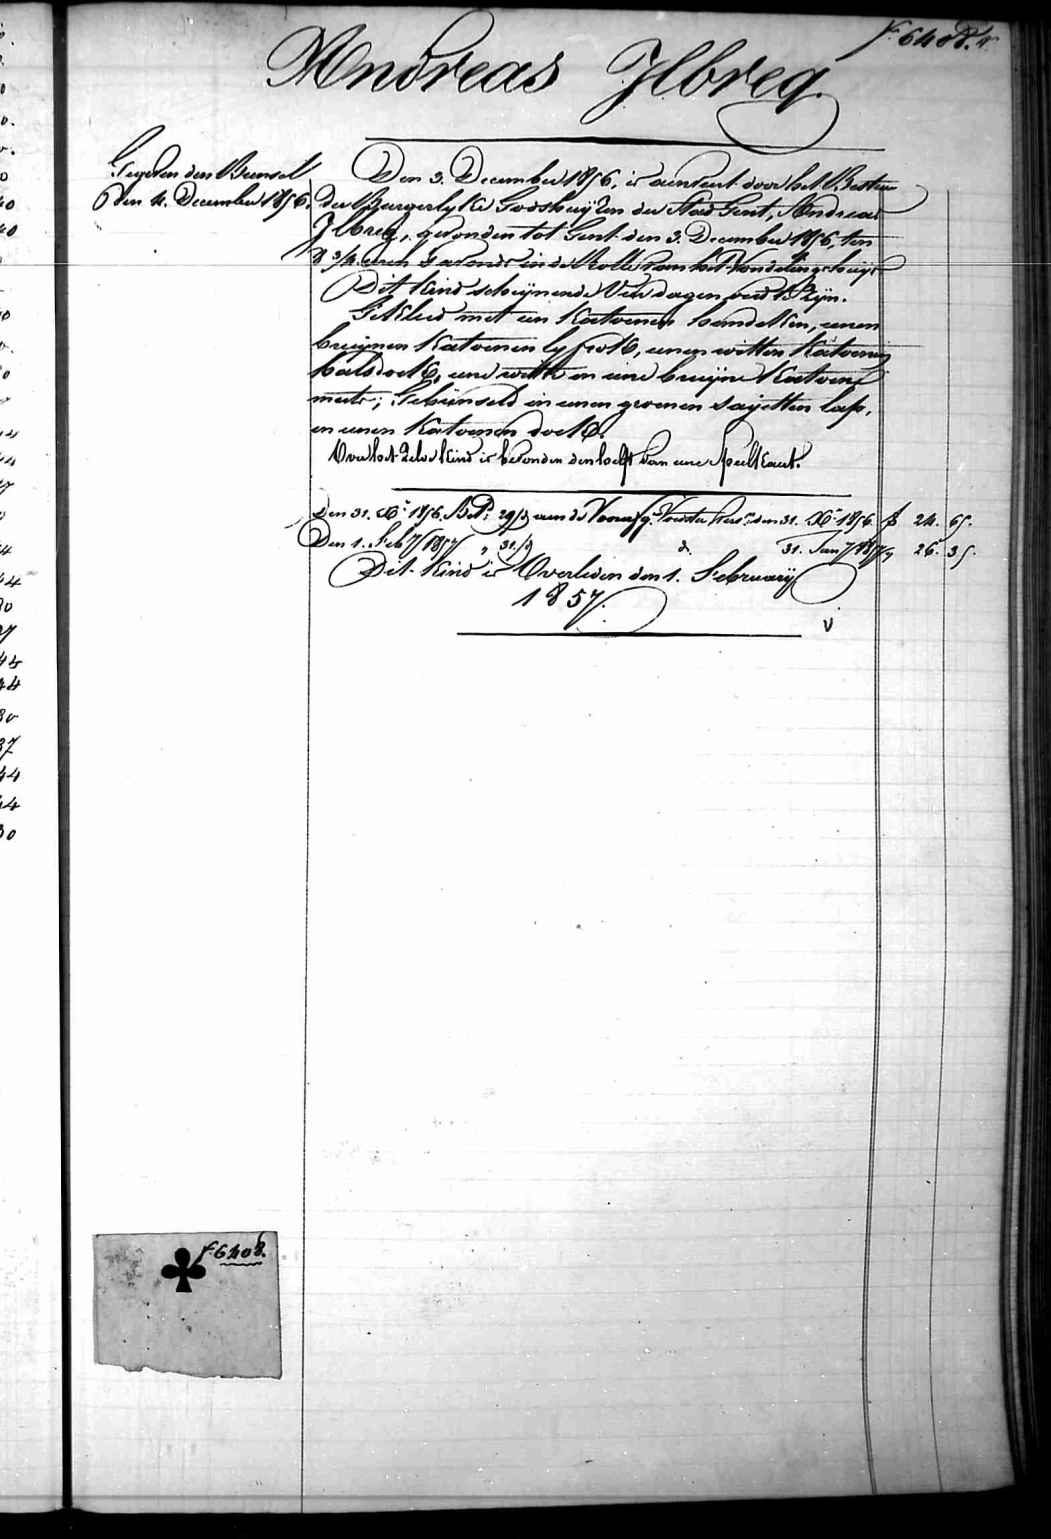 f° 6408. v
Andreas Ilbreq.
Gegeven den Bunsel
den 4. December 1856.
Den 3. December 1856, is aenveert door het Bestuer
der Burgerlyke Godshuijzen der Stad Gent, Andreas
Ilbreq, gevonden tot Gent den 3. December 1856, ten
8 3/4 uren s'avonds in de Rolle van het Vondelingshuijs
Dit kind schynende Vier dagen oud te zijn.
Gekleed met een Katoenen hemdeken, eenen
bruijnen Katoenen lyfrok, eenen witten Katoenen
halsdoek, eene witte en eene bruijne Katoene
muts; Gebunseld in eenen groenen sayetten lap,
en eenen Katoenen doek.
Over het zelve kind is bevonden den helft van eene speelkaert.
Den 31. Xr 1856. Bet. 29/d aen de Voorzg. Voedster Vers. den 31. Xr 1856. f 24. 65.
Den 1. Feby 1857 " 31/d d. 31. Jany 1857 " 26. 35.
Dit kind is Overleden den 1. February
1857.
v
f° 6408.